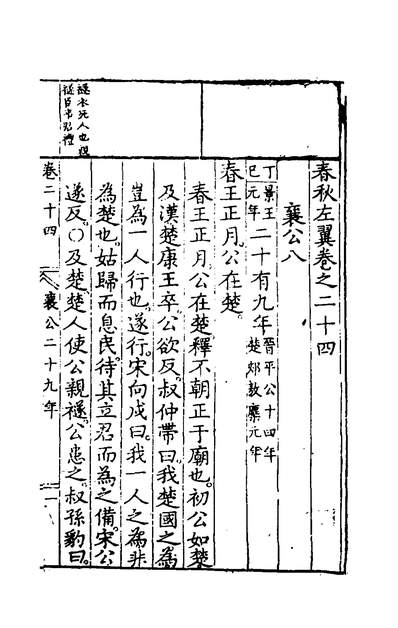 春秋左翼卷之二十四
襄公八
丁景王
巳元年
二十有九年
晉平公十四年
楚郟敖麇元年
春王正月公在楚
春王正月公在楚釋不朝正于廟也初公如楚
及漢楚康王卒公欲反叔仲帶曰我楚國之為
豈為一人行也遂行宋向戍曰我一人之為非
為楚也姑歸而息民待其立君而為之備宋公
遂反○及楚楚人使公親襚公患之叔孫豹曰
襚衣死人也
禮
卷二十四
襄公二十九年
一